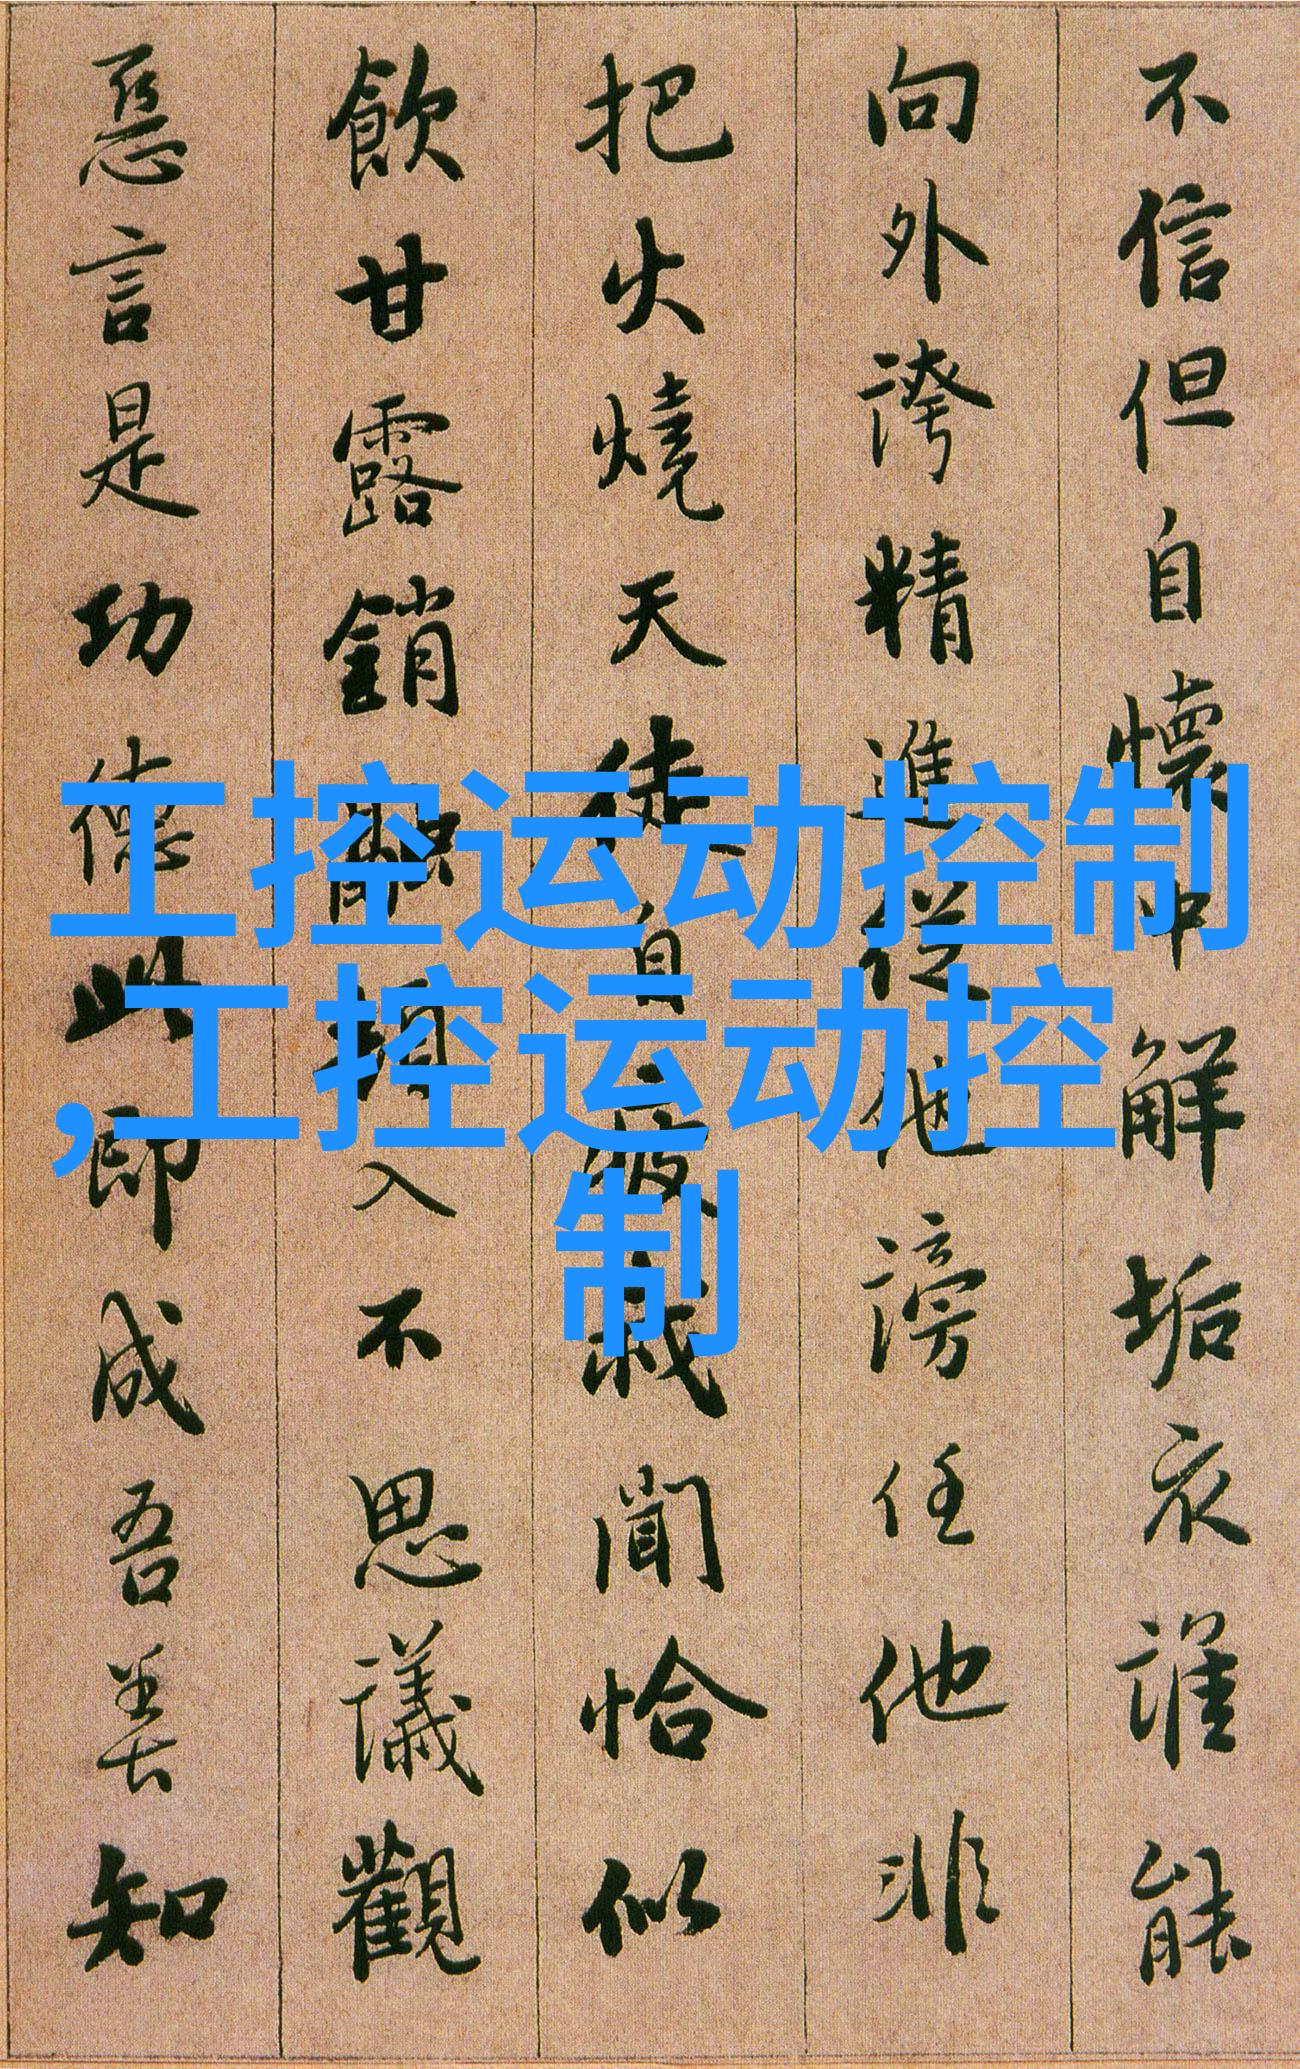 不信但自懷中解垢衣誰能
向外誇精進從他謗任他非
把火燒天徒自疲我聞恰似
飲甘露銷融頓入不思議觀
惡言是功德此即成吾善知
工控运动控制
,工控运动控
制